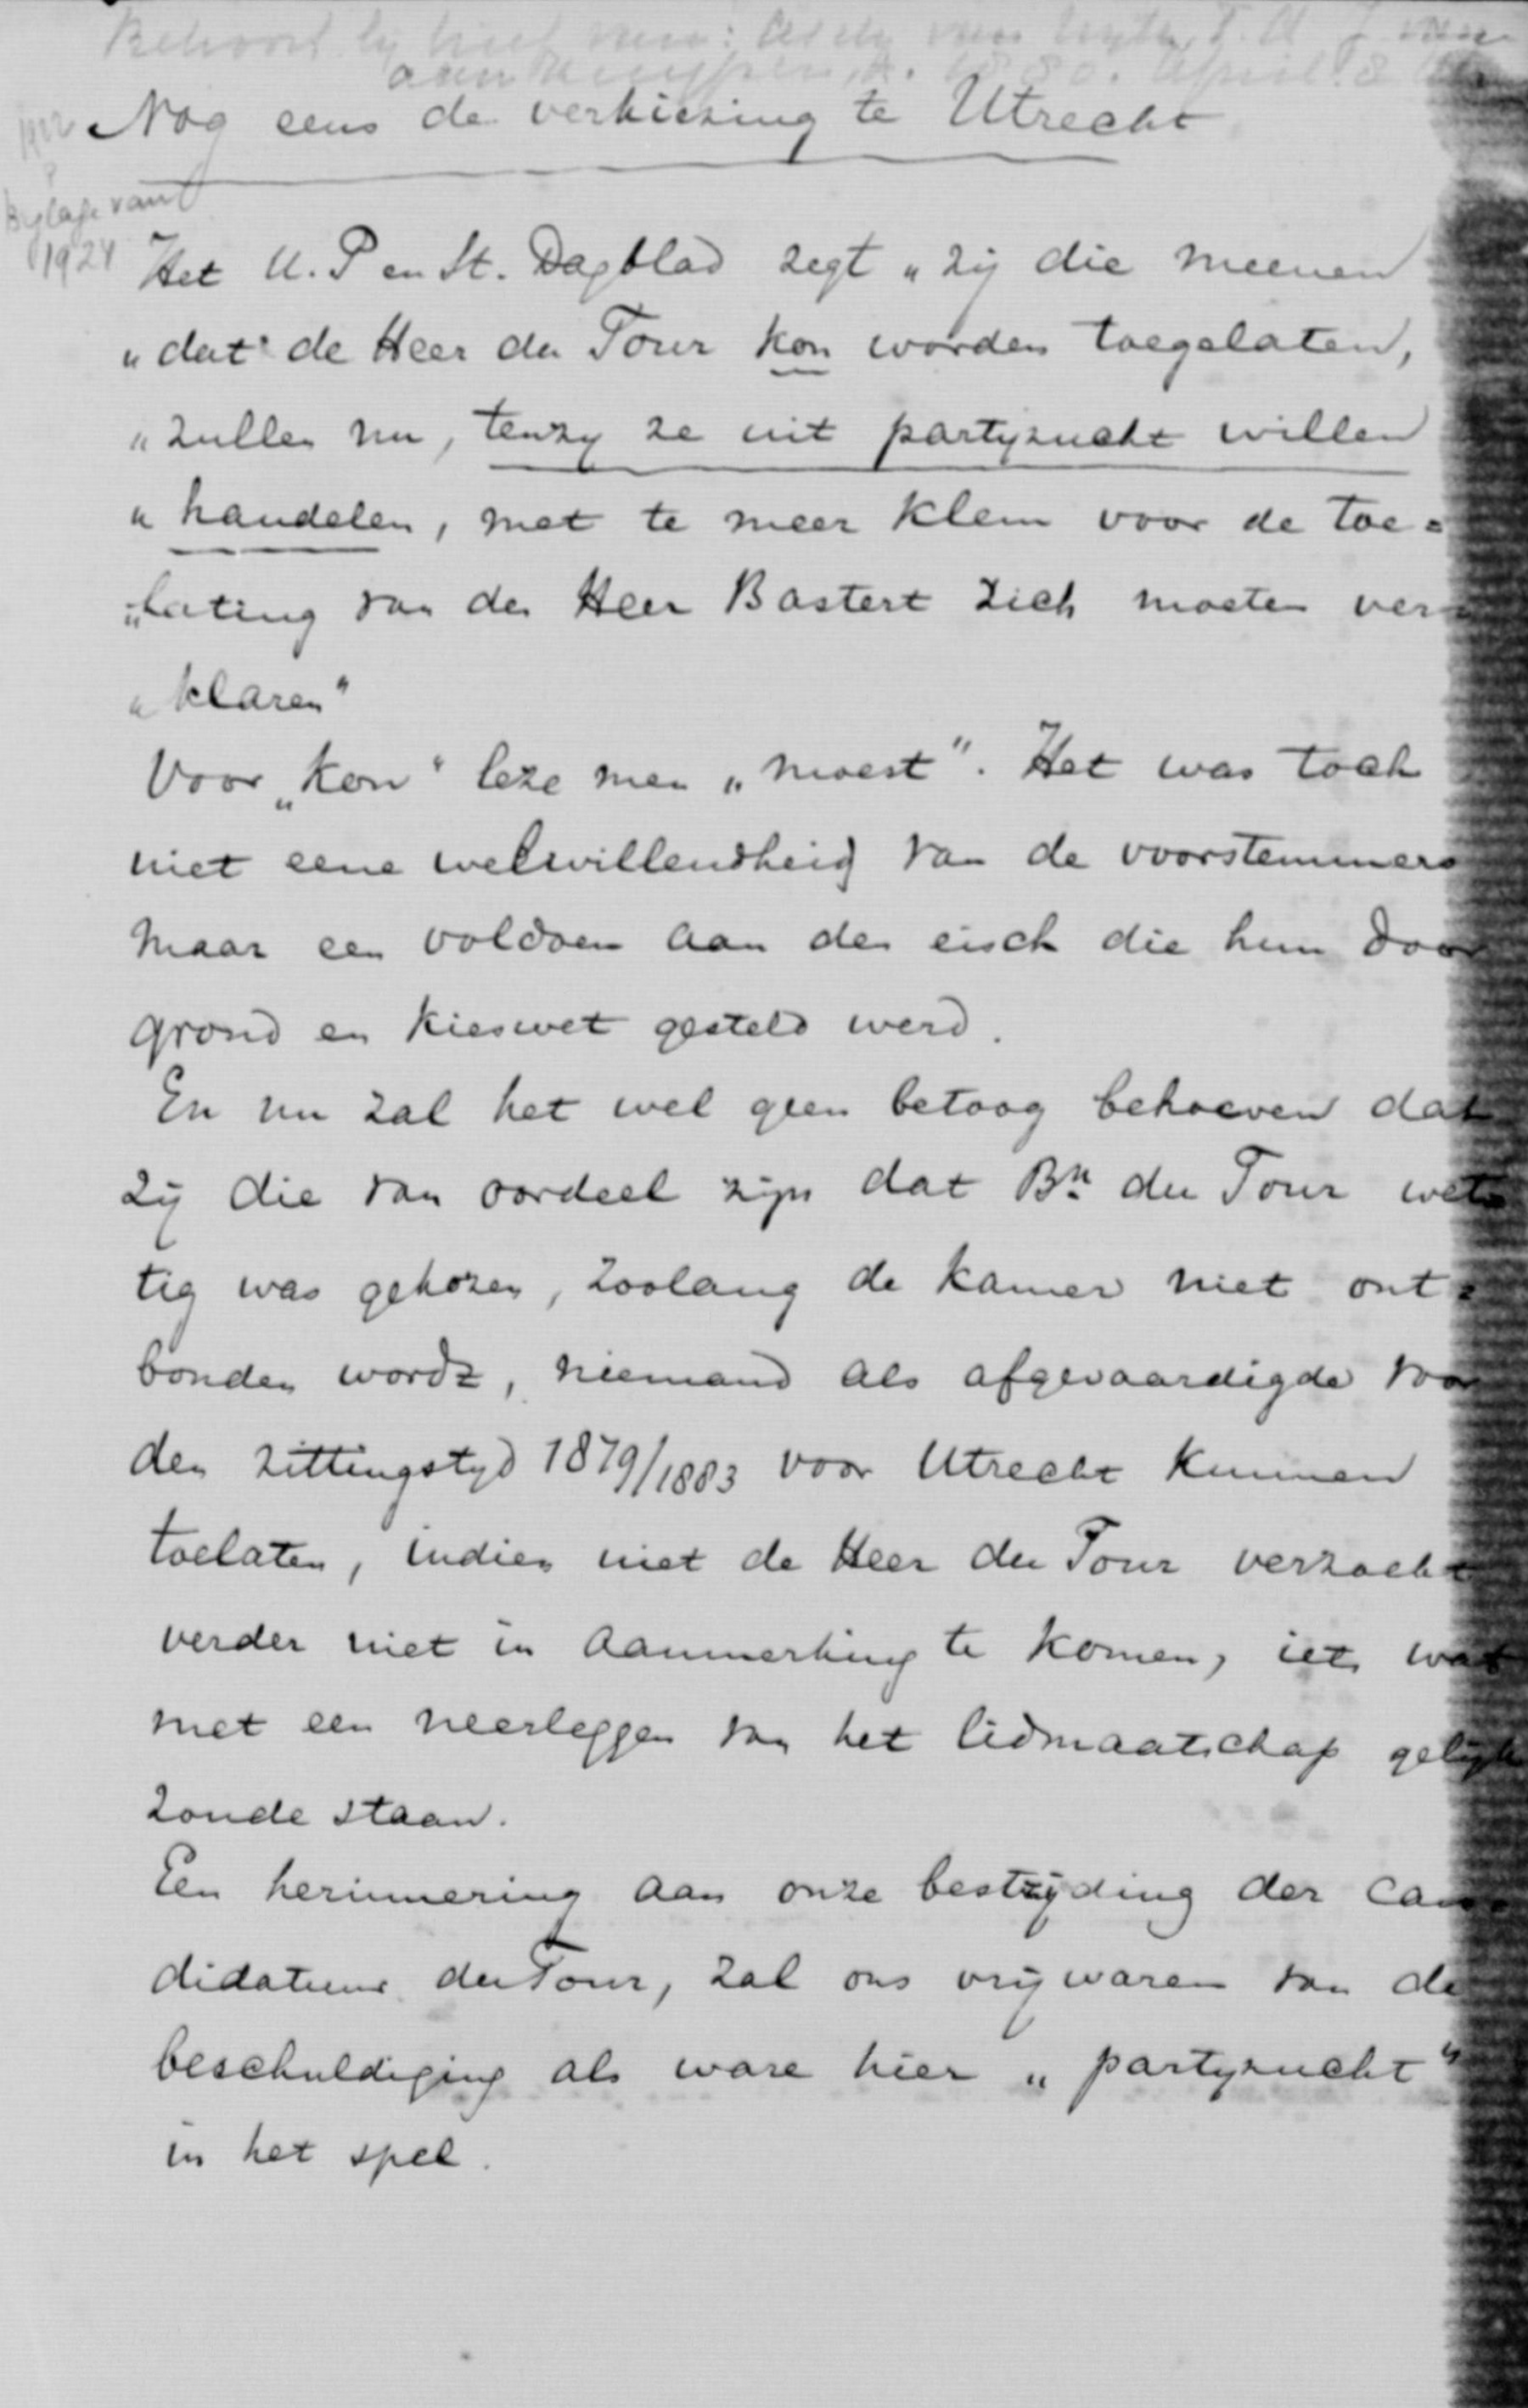 Behoort bij brief van:
aan Kuyper, A. 1880. April. 8
Nog eens de verkiezing te Utrecht
Bijlage van
1924
Het U. P en St. Dagblad zegt „ zij die meenen
„ dat de Heer du Tour kon worden toegelaten,
„ zullen nu, tenzy ze uit partyzucht willen
„ handelen, met te meer klem voor de toe=
„lating van den Heer Bastert zich moeten ver=
„ klaren"
Voor „kon" leze men „moest". Het was toch
niet eene welwillendheid van de voorstemmers
maar een voldoen aan den eisch die hun door
grond en kieswet gesteld werd.
En nu zal het wel geen betoog behoeven dat
zij die van oordeel zijn dat Bn du Tour wet=
tig was gekozen, zoolang de kamer niet ont=
bonden wordt, niemand als afgevaardigde voor
den zittingstyd 1879/1883 voor Utrecht kunnen
toelaten, indien niet de Heer du Tour verzocht
verder niet in aanmerking te komen, iets wat
met een neerleggen van het lidmaatschap gelijk
zoude staan.
Een herinnering aan onze bestrijding der can=
didatuur du Tour, zal ons vrijwaren van de
beschuldiging als ware hier „ partyzucht"
in het spel.